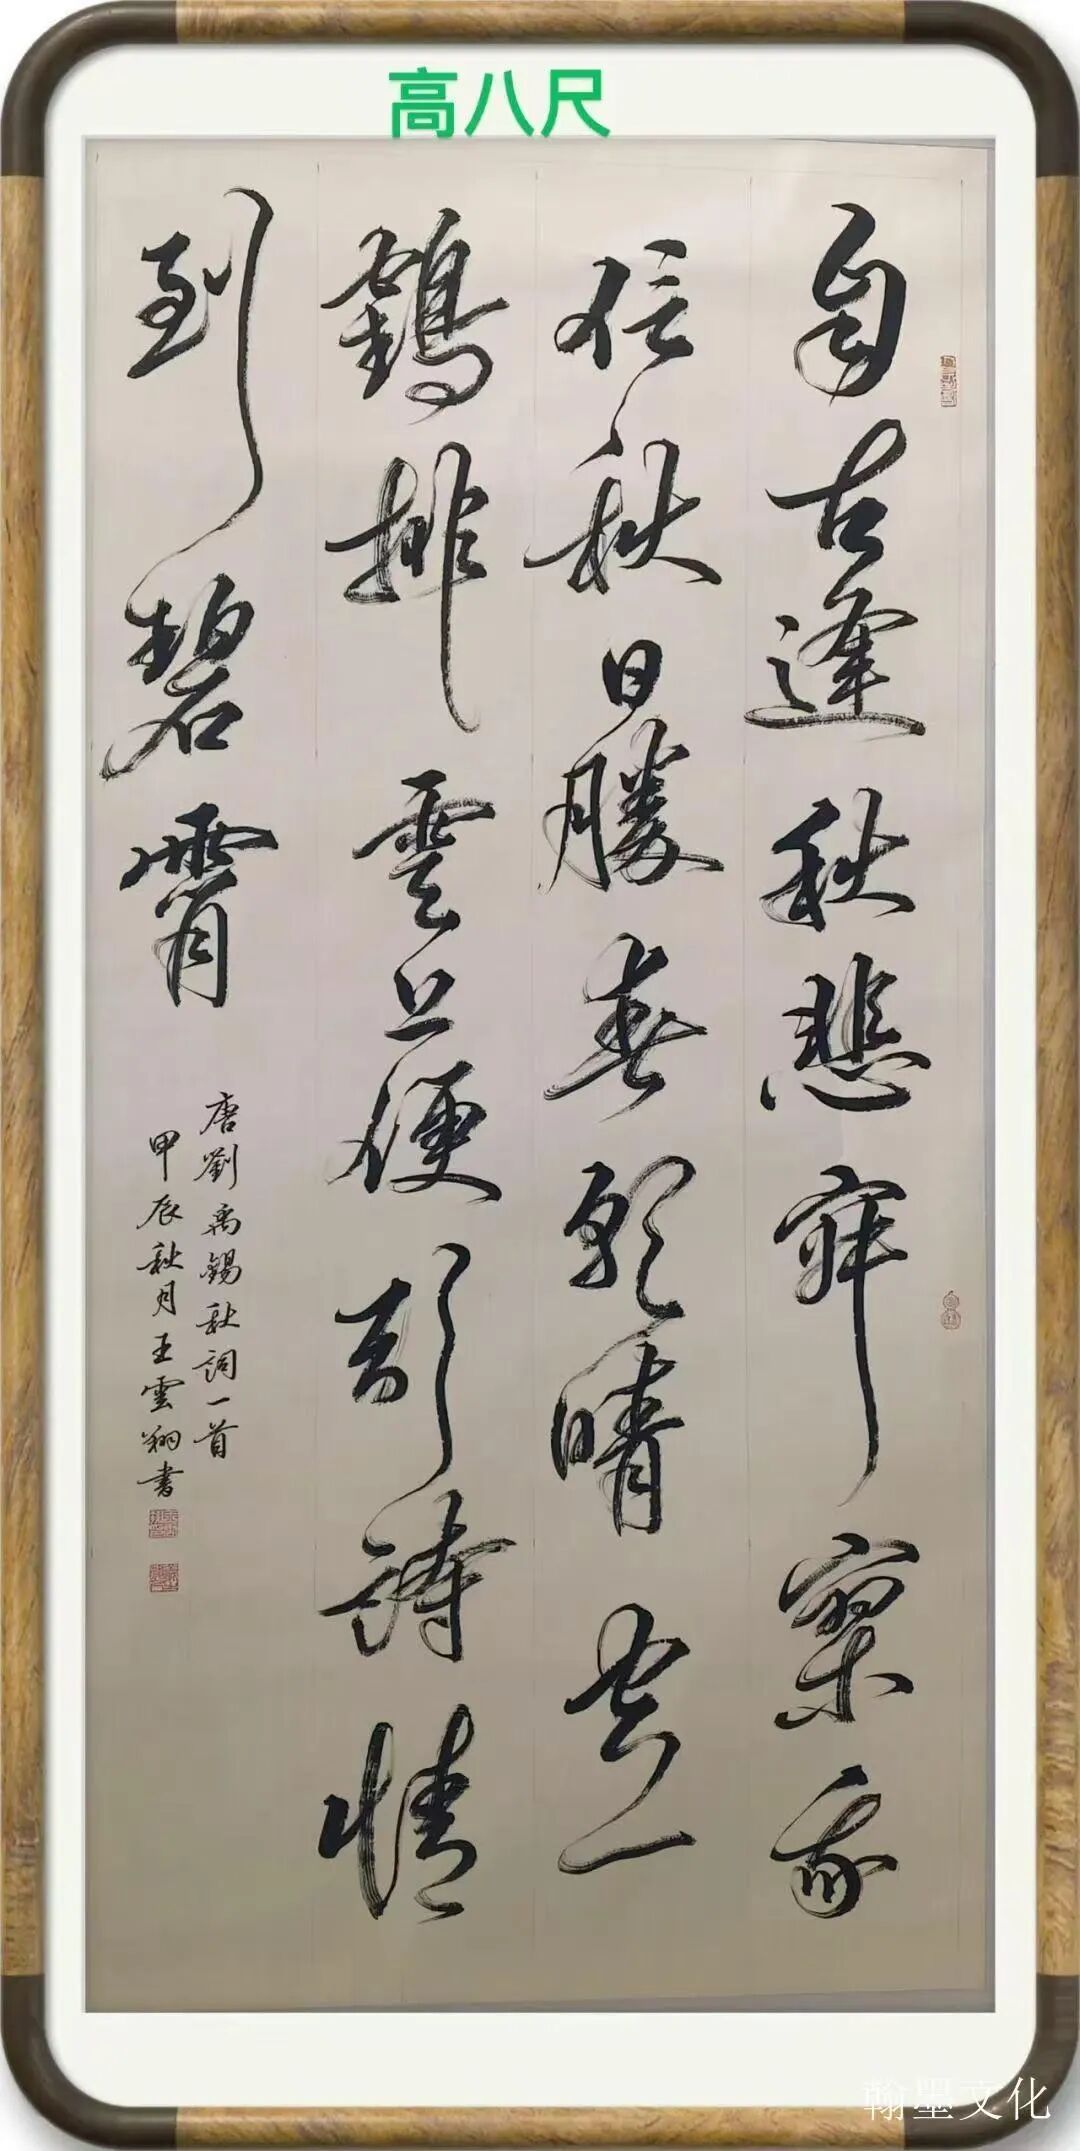 高八尺
自古逢秋悲寂寥我
信秋日勝春朝晴空一
鶴排雲上便引詩情
到碧霄
唐劉禹錫秋詞一首
甲辰秋月王雲翔書
翰墨文化